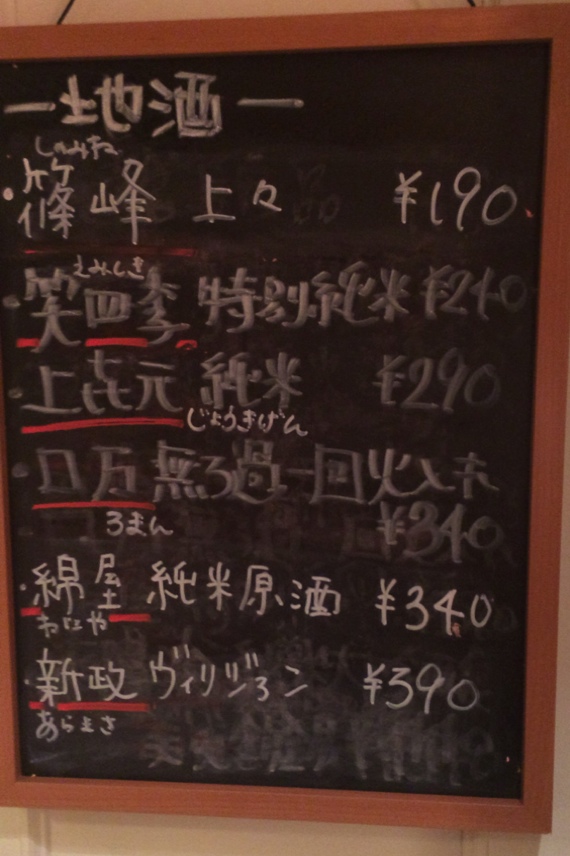 ー地酒ー
しのみね
・篠峰 上々 ¥190
えみしき
・笑四季 特別純米 ¥240
・上㐂元 純米 ¥290
じょうきげん
・ロ万 無ろ過一回火入れ
¥340
ろまん
・綿屋 純米原酒 ¥340
わたや
・新政 ヴィリジョン ¥390
あらまさ